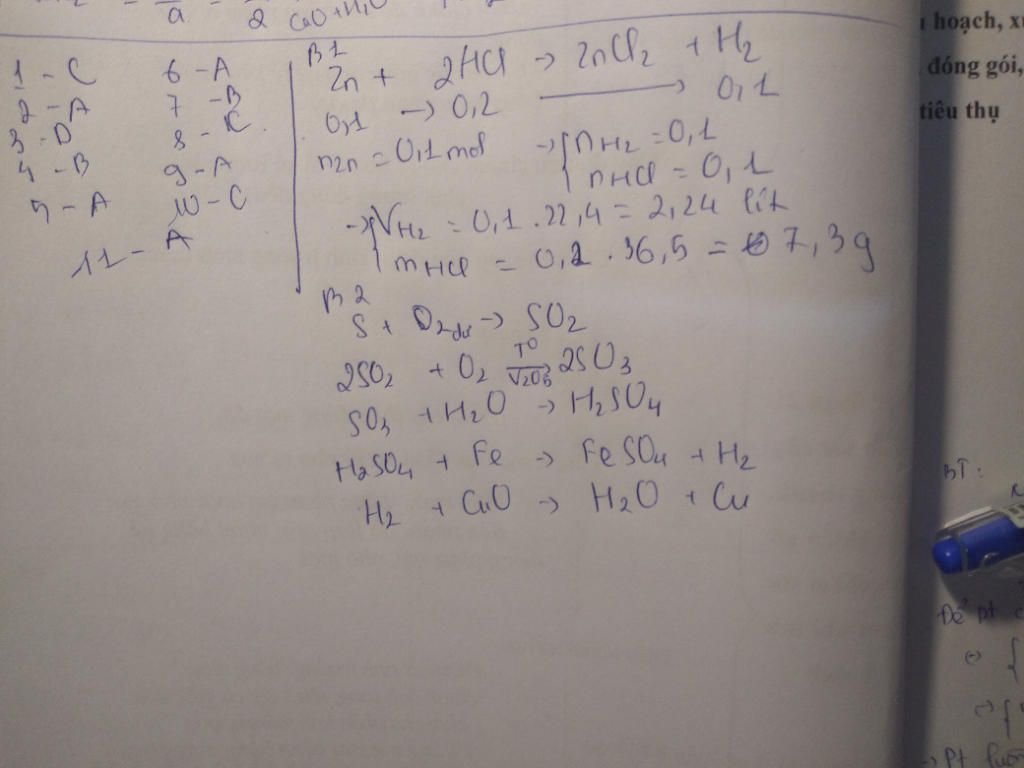 a 2 CaO+H2O
1 - C
2 - A
3 - D
4 - B
5 - A
6 - A
7 - B
8 - C
9 - A
10 - C
11 - A
B1
Zn + 2HCl → ZnCl2 + H2
0,1 → 0,2 → 0,1
nZn = 0,1 mol → { nH2 = 0,1
nHCl = 0,1
→ { VH2 = 0,1 . 22,4 = 2,24 lít
mHCl = 0,2 . 36,5 = 7,3g
B2
S + O2 → SO2
2SO2 + O2 T° V2O5 2SO3
SO3 + H2O → H2SO4
H2SO4 + Fe → FeSO4 + H2
H2 + CuO → H2O + Cu
hoạch,
đóng gói,
tiêu thụ
BT:
Để pt
→ Pt